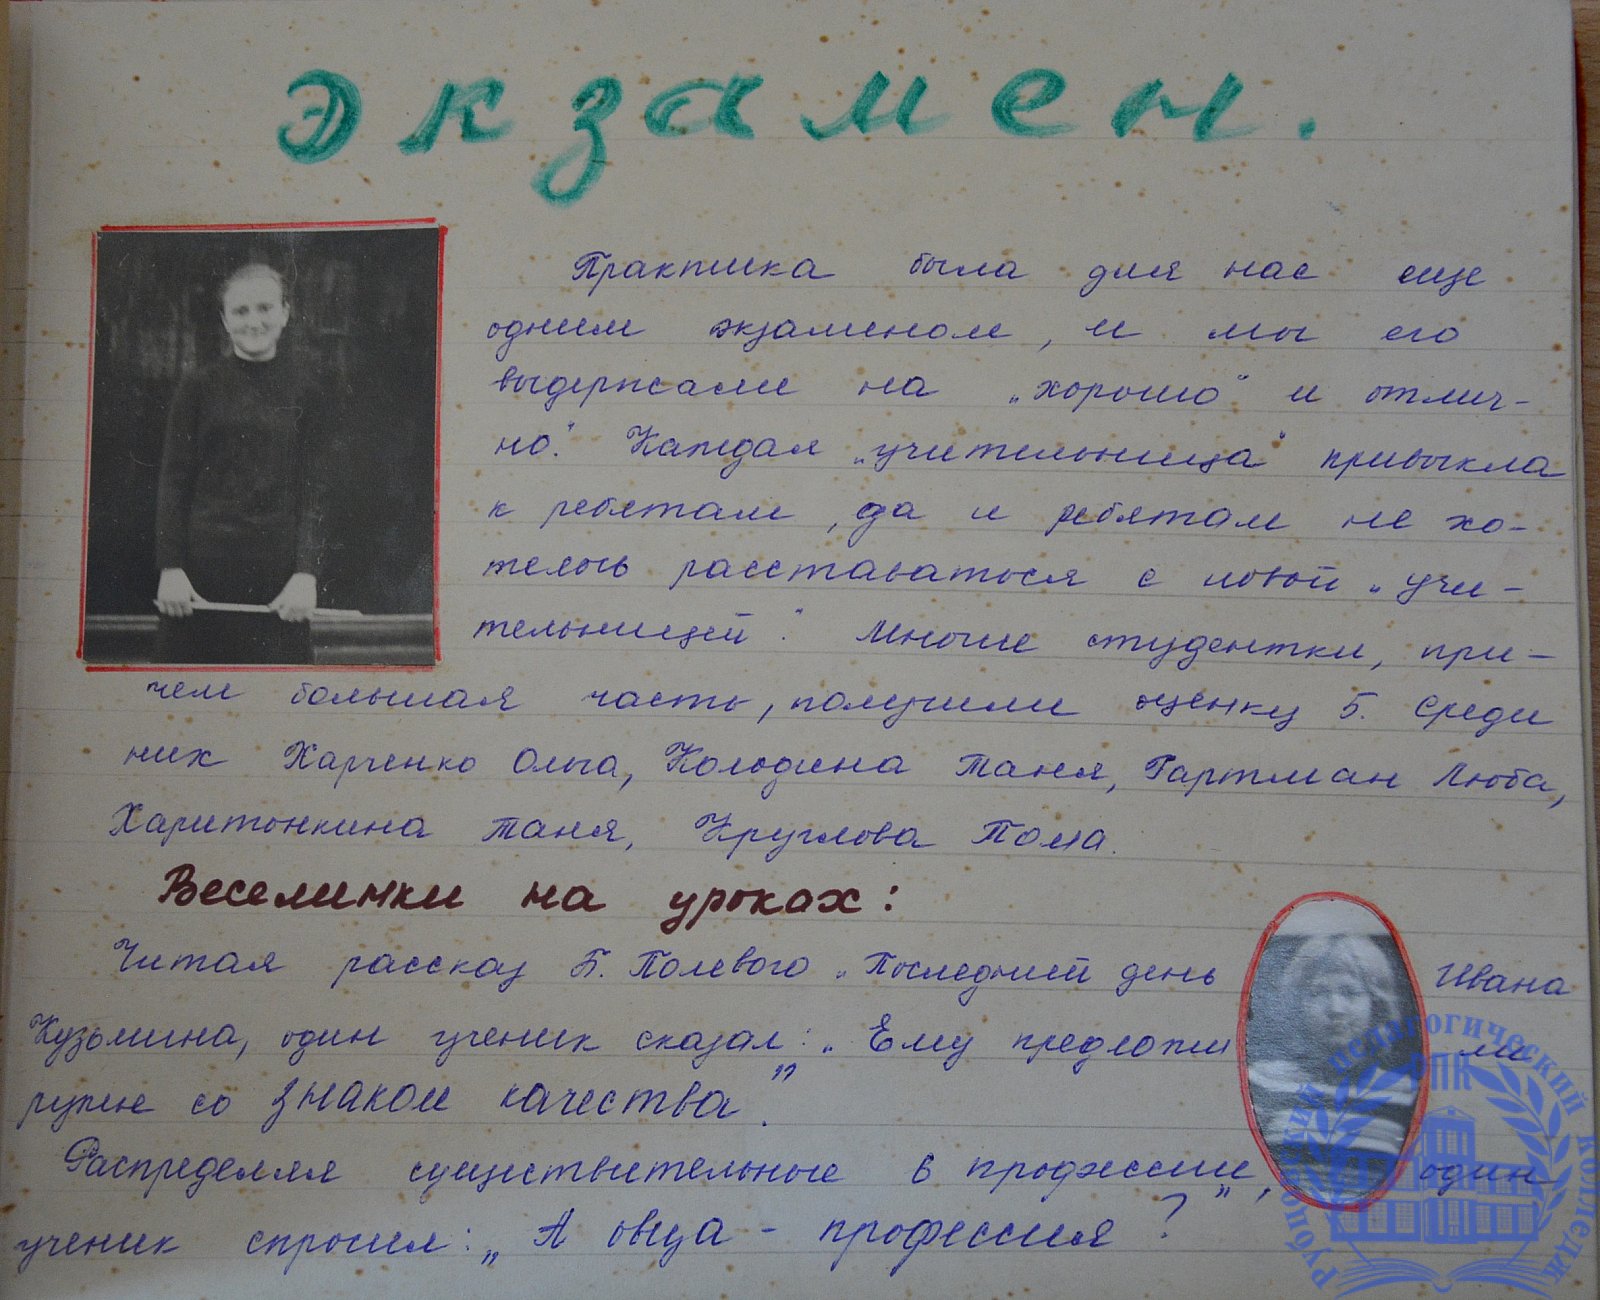 Экзамен.
Практика была для нас еще
одним экзаменом, и мы его
выдержали на „хорошо" и отлич-
но". Каждая „учительница" привыкла
к ребятам, да и ребятам не хо-
телось расставаться с новой „учи-
тельницей". Многие студентки, при-
чем большая часть, получили оценку 5. Среди
них Харченко Ольга, Колодина Таня, Гартман Люба,
Харитонкина Таня, Круглова Тома.
Веселинки на уроках:
Читая рассказ Б. Полевого „Последний день Ивана
Кузьмина, один ученик сказал: „Ему предложили
ружье со знаком качества".
Распределяя существительные в профессии, один
ученик спросил: „А овца - профессия?"
Рубцовский педагогический колледж
РПК